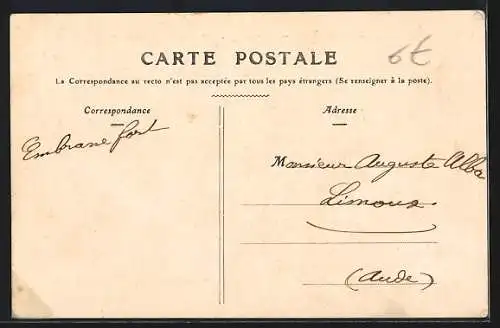 6€
CARTE POSTALE
La Correspondance au recto n'est pas acceptée par tous les pays étrangers (Se renseigner à la poste).
Correspondance
Adresse
Embrasse fort
Monsieur Auguste Alba
Limoux
(Aude)